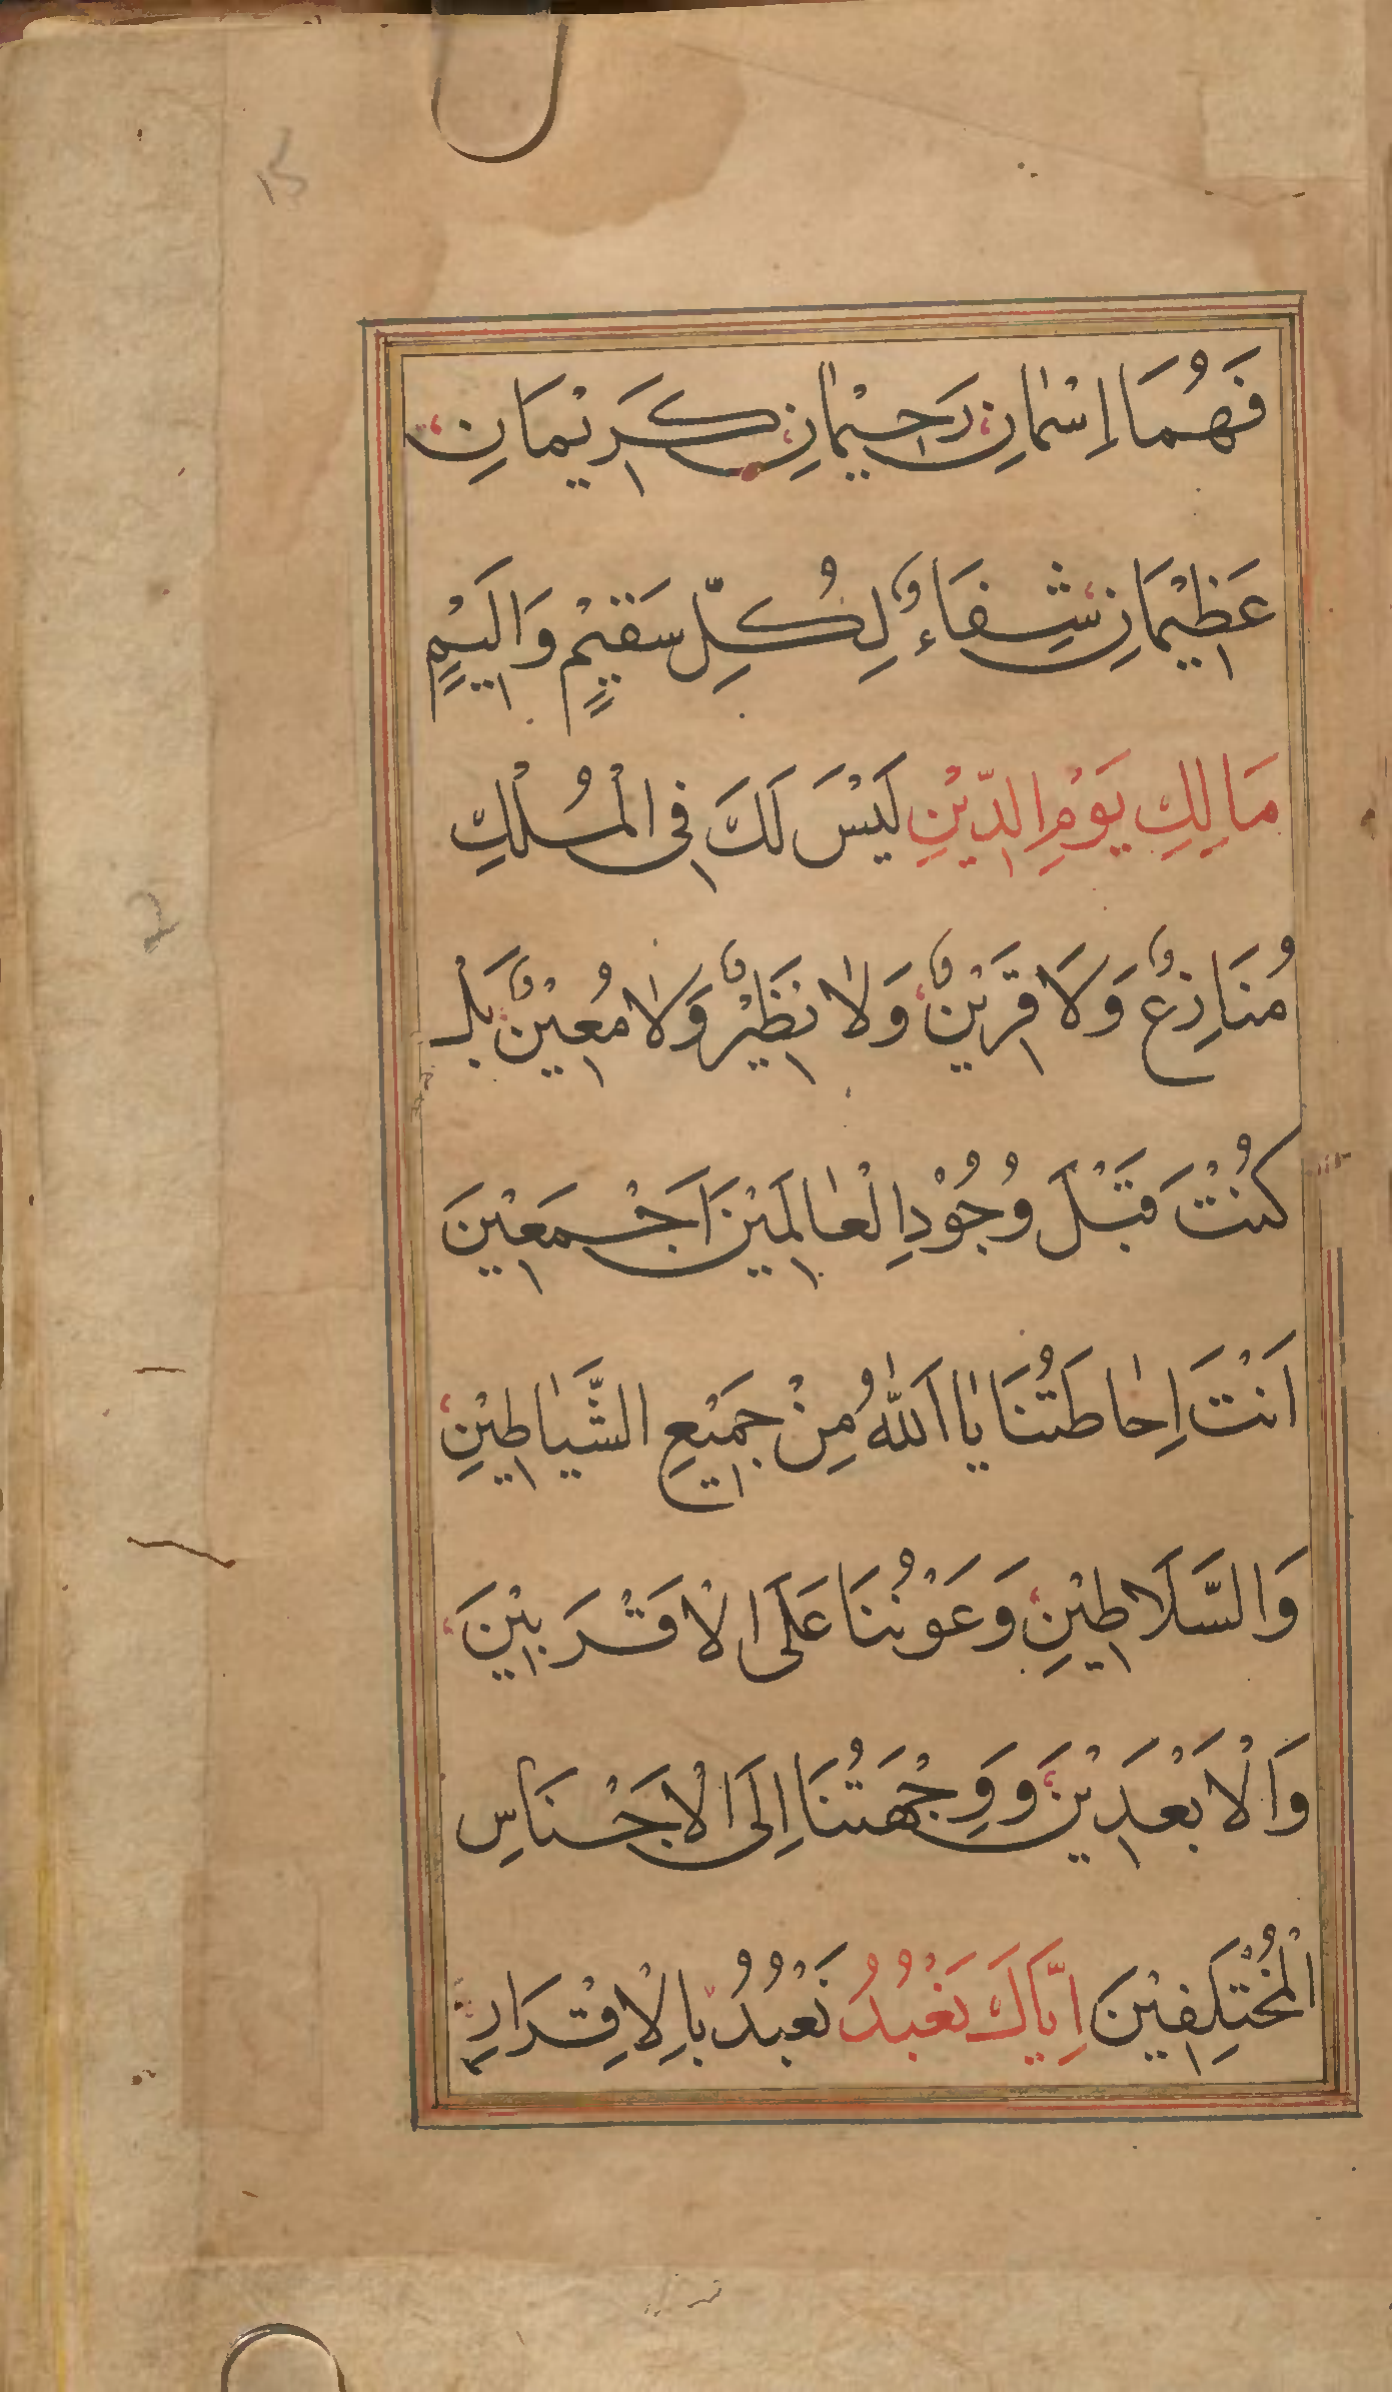 15
فَهُمَا اِسْمٰانِ رَحِیْمٰانِ كَرِیْمَانِ
عَظِیْمَانِ شِفَاءٌ لِكُلِّ سَقِیْمٍ وَاَلِیْمٍ
مَالِكِ یَوْمِ الدِّیْنِ لَیْسَ لَكَ فِی الْمُلْكِ
مُنَازِعٌ وَلَا قَرَیْنٌ وَلٰا نَظَیْرٌ وَلٰا مُعِیْنٌ بَلْ
كُنْتَ قَبْلَ وُجُوْدِ الْعٰالَمِیْنَ اَجْمَعِیْنَ
اَنْتَ اِحٰاطَتُنَا یٰا اَللّٰهُ مِنْ جَمِیْعِ الشَّیٰاطِیْنِ
وَالسَّلَاطِیْنِ وَعَوْنُنَا عَلَی الْاَقْرَبِیْنَ
وَالْاَبْعَدِیْنَ وَوِجْهَتُنَا اِلَی الْاَجْنَاسِ
الْمُخْتَلِفِیْنَ اِیَّاكَ نَعْبُدُ نَعْبُدُ بِالْاِقْرَارِ
2